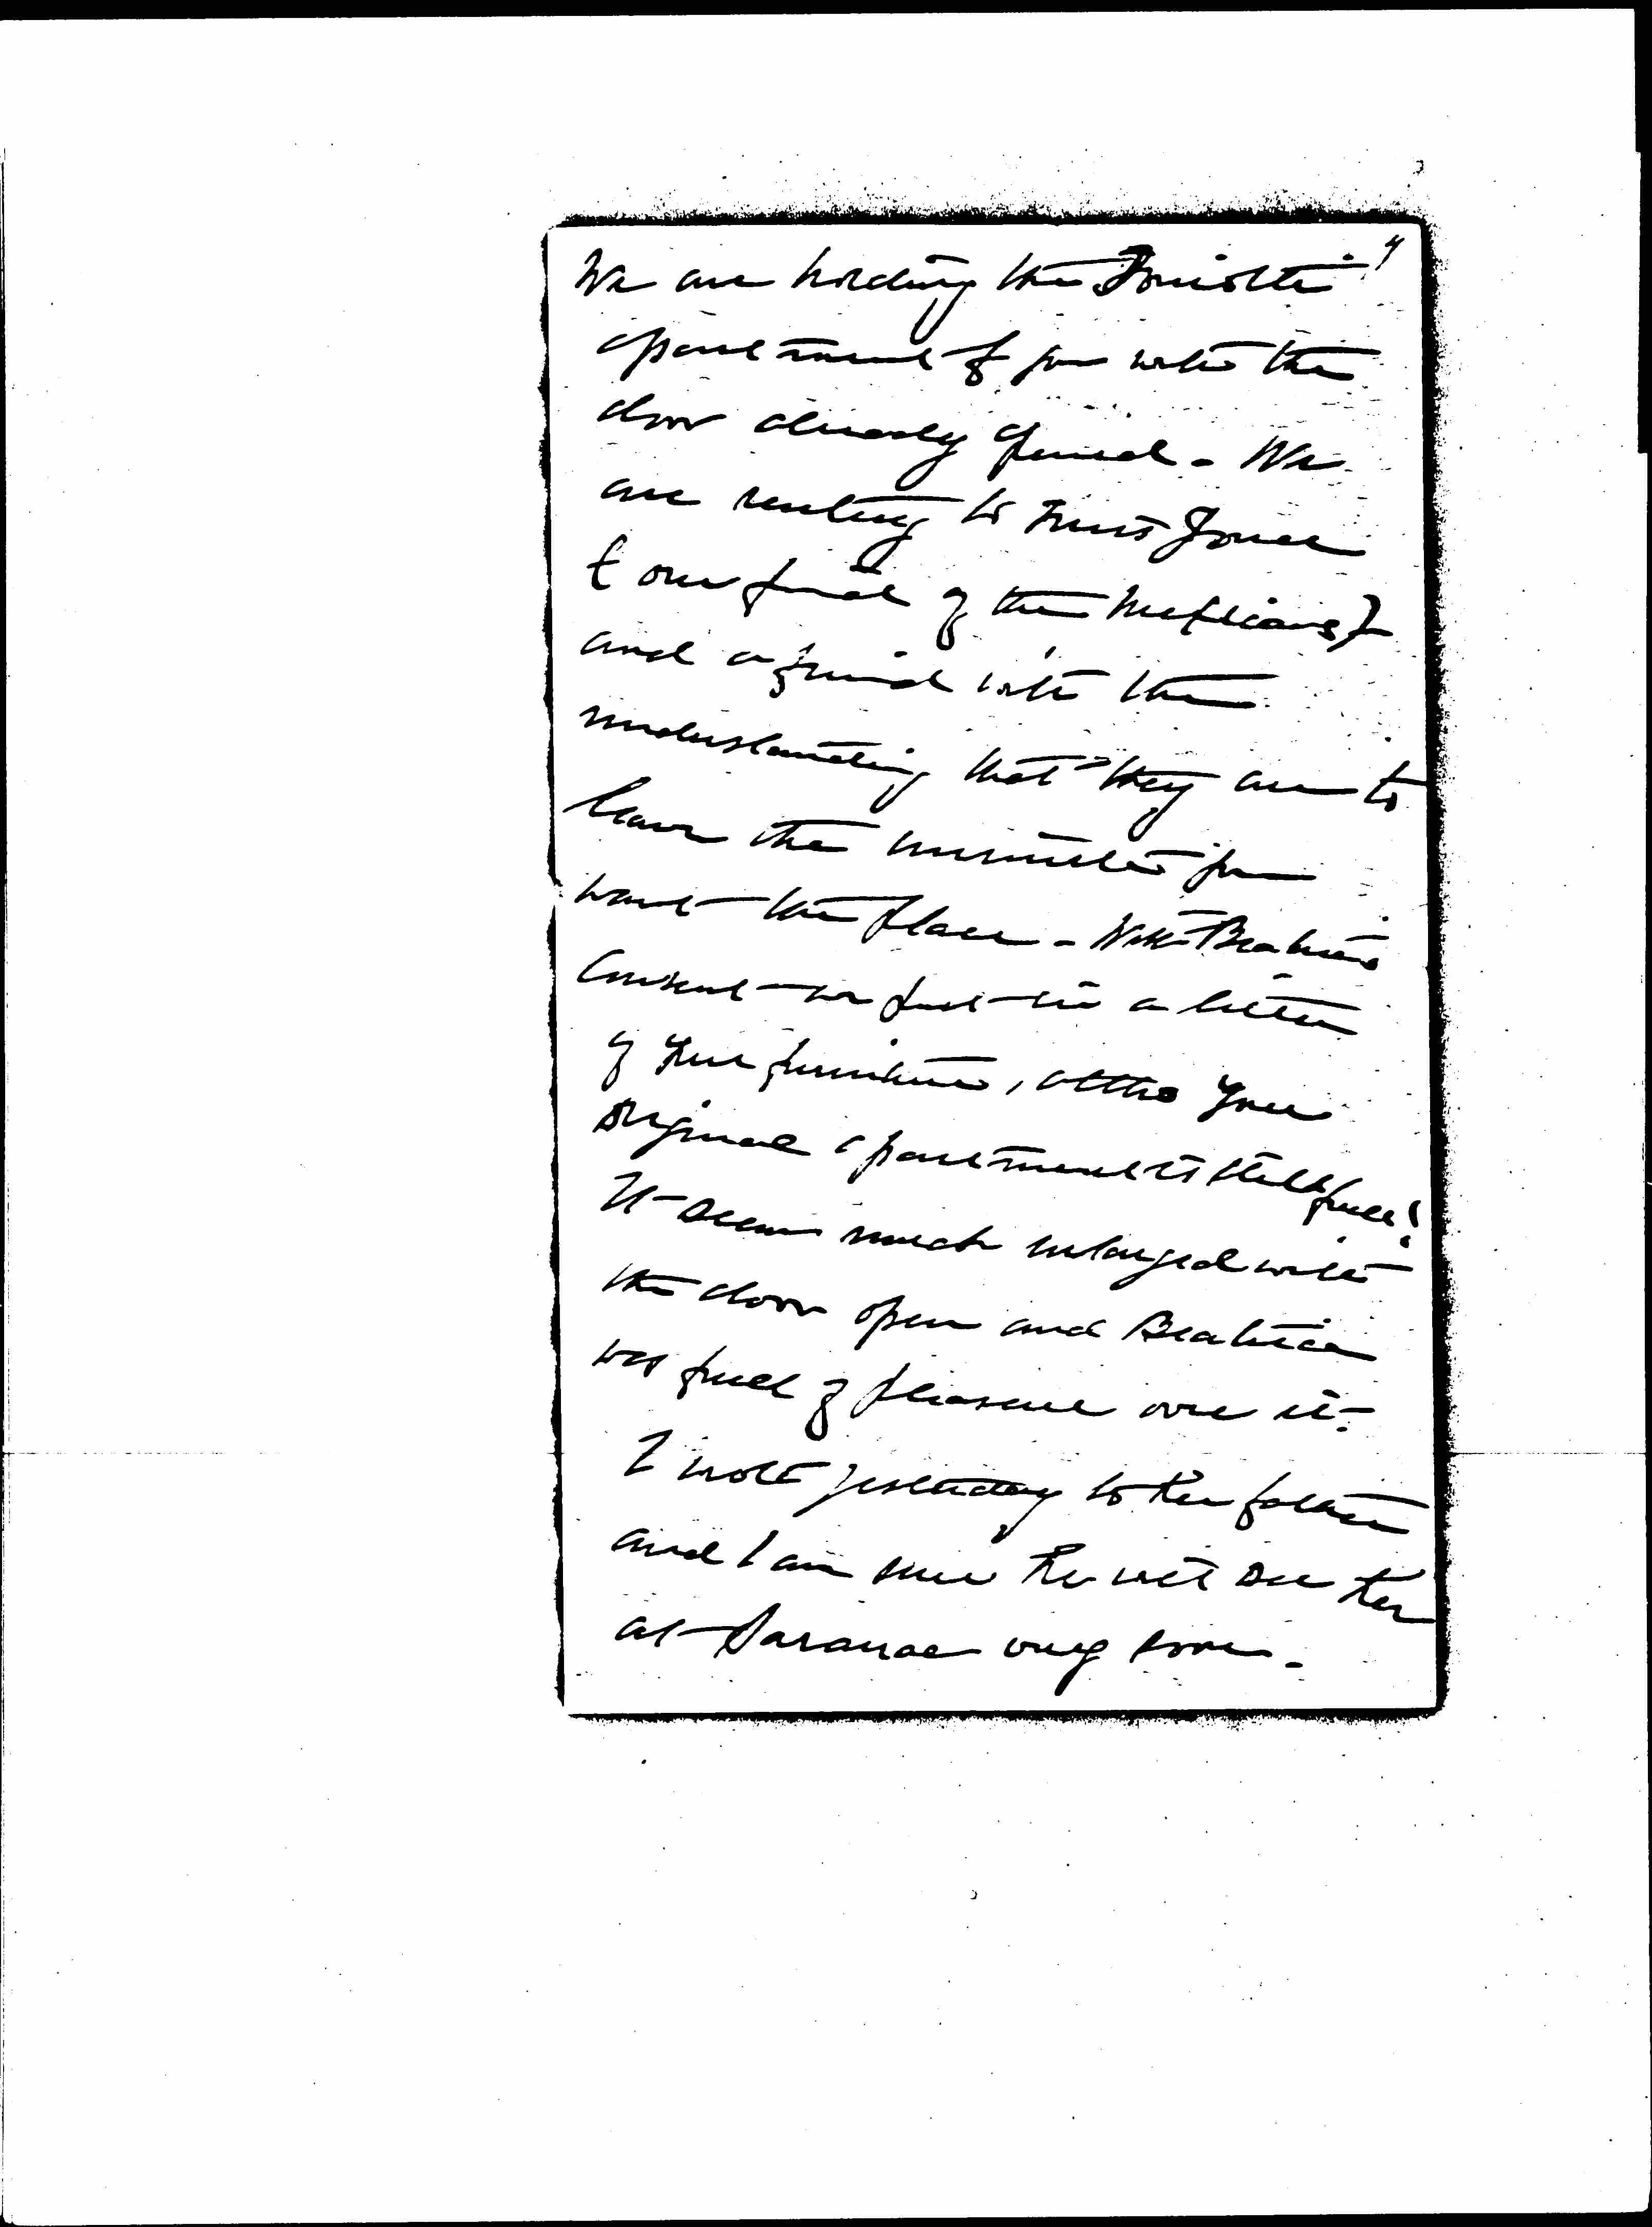 4
We are holding the
apartment for you with the
door already opened - We
are renting to Miss Jones
and a friend with the
understanding that they are to
leave the minute you
want the place - With Beatrice's
consent we put in a little
of your furniture, altho your
original apartment is still full!
It seems much enlarged with
the door open and Beatrice
was full of pleasure over it -
I wrote yesterday to her father
and I am sure he will see her
at Saranac very soon -